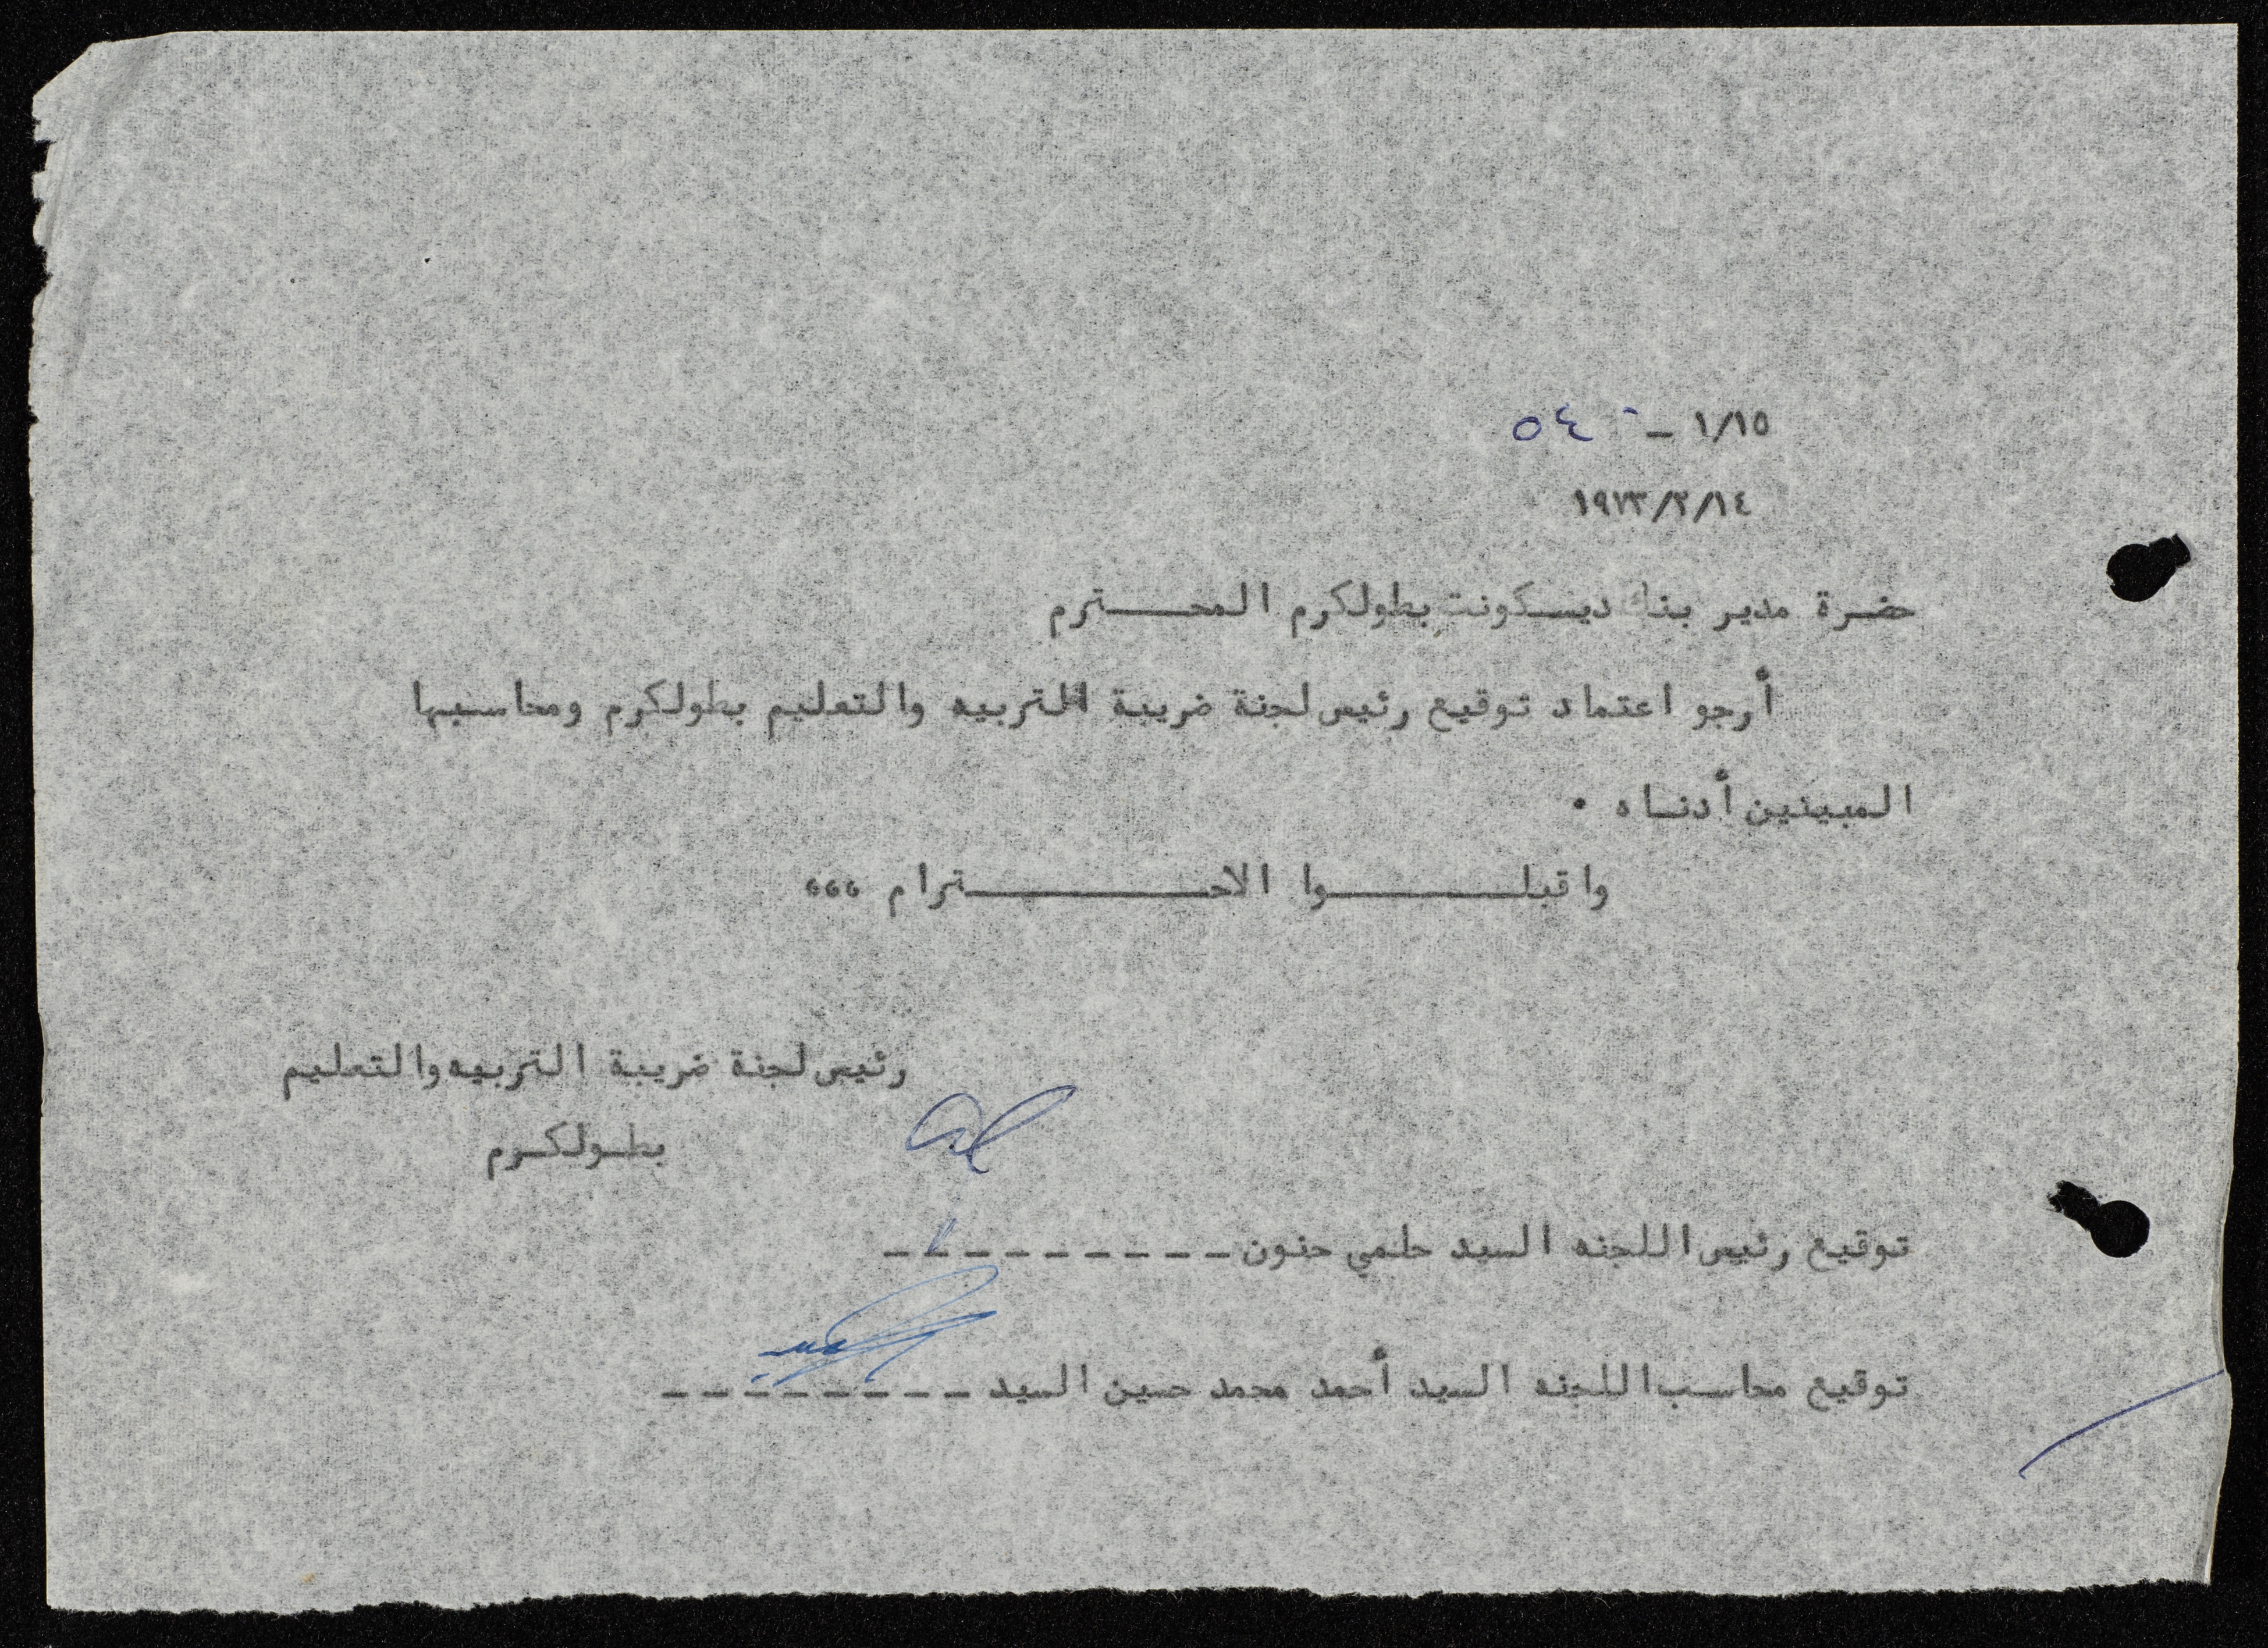 ١/١٥ – ٥٤٠
١٩٧٣/٢/١٤
حضرة مدير بنك ديسكونت بطولكرم المحـــترم
أرجو اعتماد توقيع رئيس لجنة ضريبة التربيه والتعليم بطولكرم ومحاسبها
المبينين أدنـاه ٠
واقبلـــــــوا الاحــــــــــترام ،،،
رئيس لجنة ضريبة التربيه والتعليم
بطـولكـرم
توقيع رئيس اللجنه السيد حلمي حنون _ _ _ _ _ _ _ _ _
توقيع محاسب اللجنه السيد أحمد محمد حسين السيد _ _ _ _ _ _ _ _